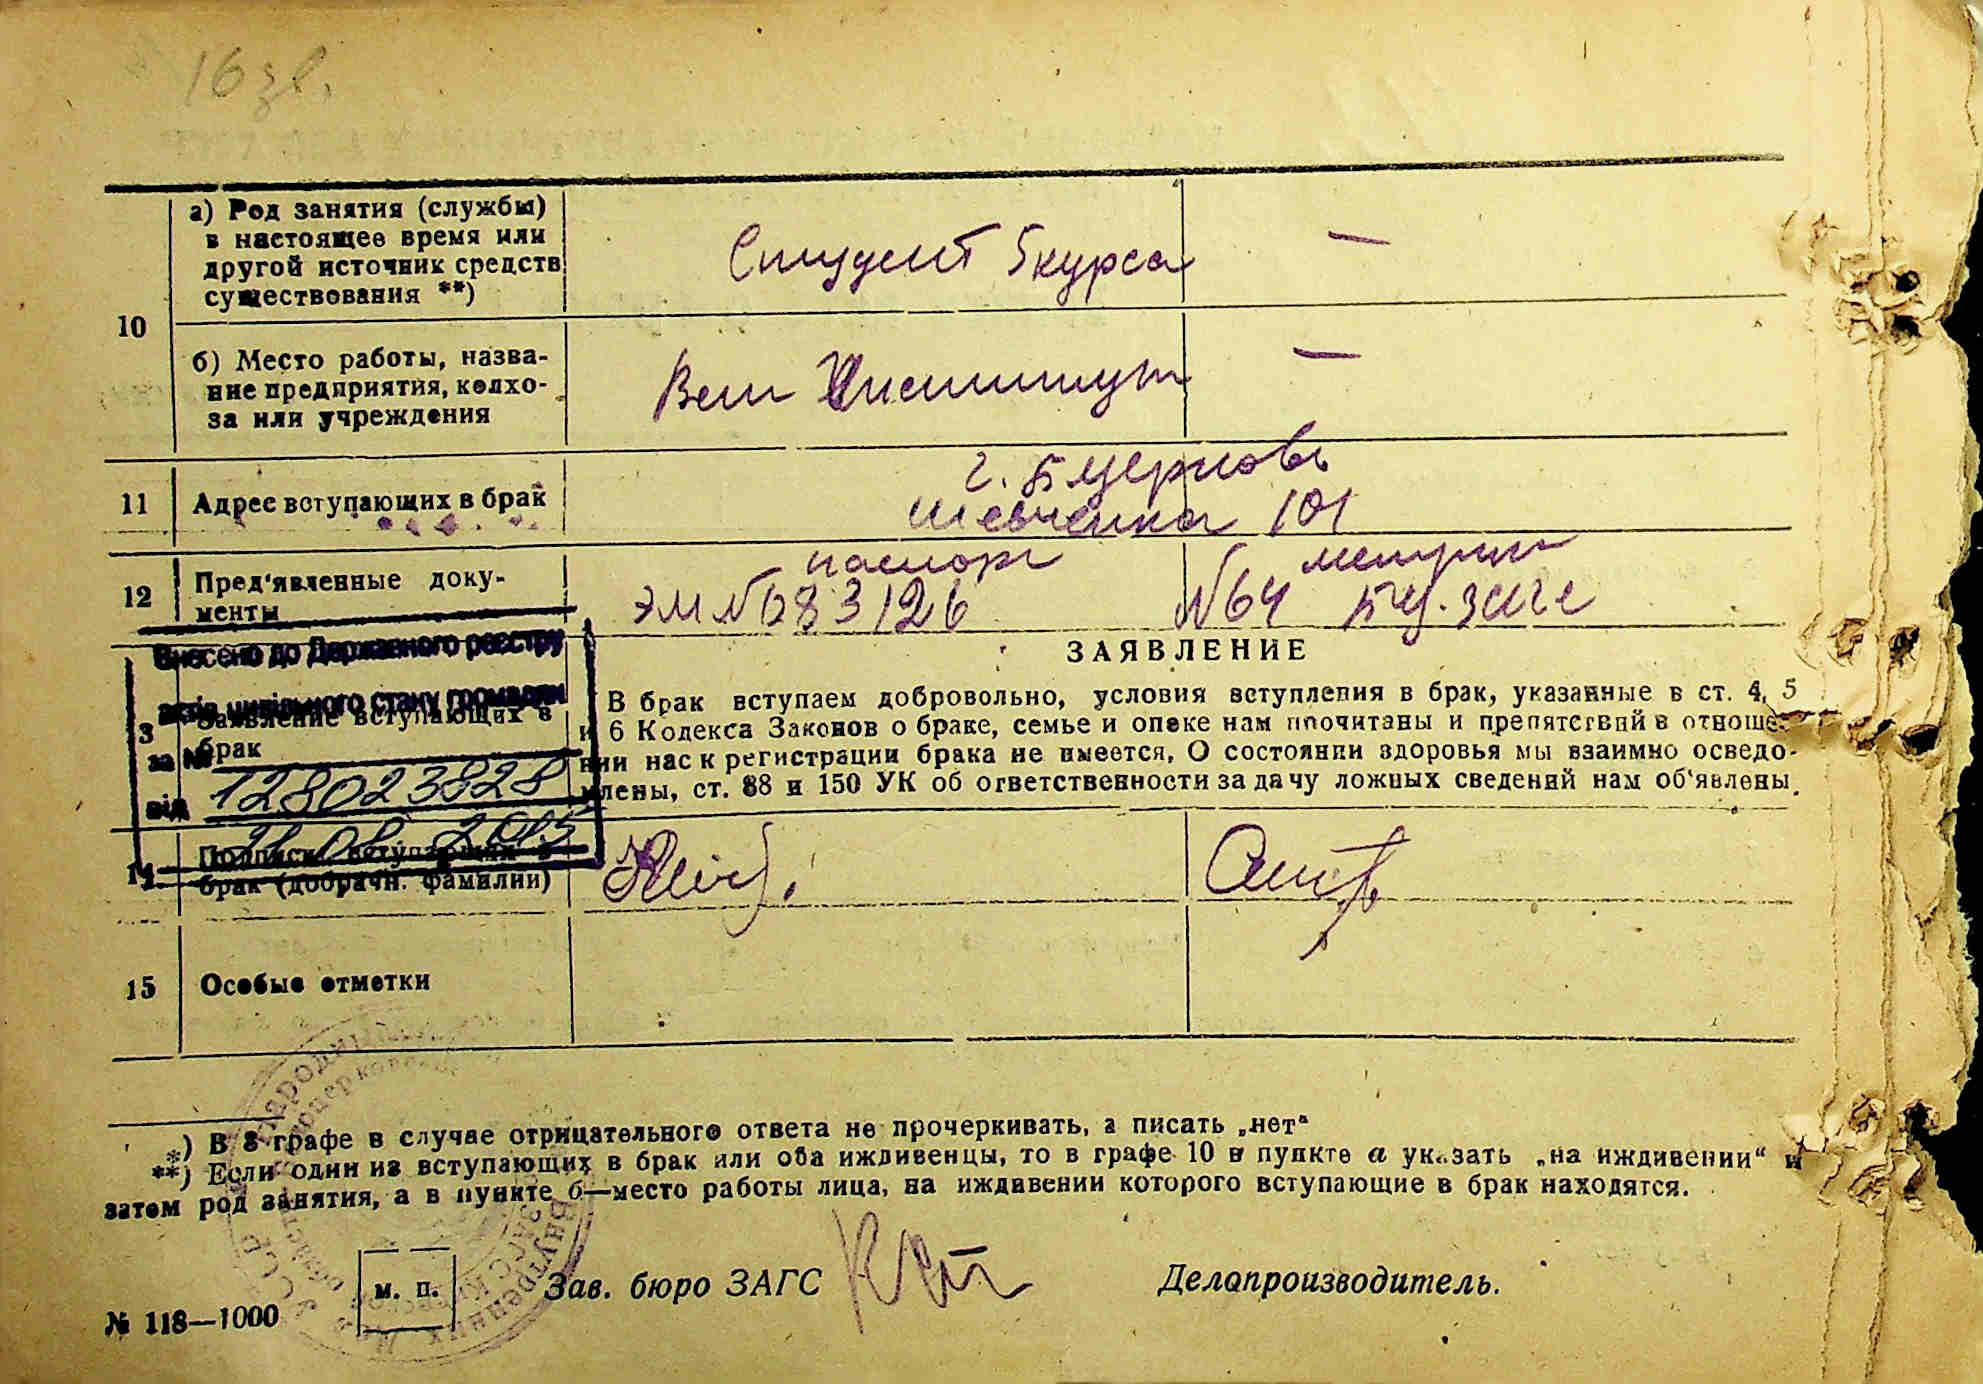 16 зв.
10
а) Род занятия (службы)
в настоящее время или
другой источник средств
существования **)
Студент 5 курса
—
б) Место работы, назва-
ние предприятия, колхо-
за или учреждения
Вет Институт
—
11
Адрес вступающих в брак
г. Б Церковь
Шевченка 101
12
Пред'явленные доку-
менты
паспорт
ЭМ №683126
метрич
№64 Бц. загс
Внесено до Державного реєстру
актів цивільного стану громадян
за №
128023828
від
2015
3
Заявление вступающих в
брак
ЗАЯВЛЕНИЕ
В брак вступаем добровольно, условия вступления в брак, указанные в ст. 4, 5
и 6 Кодекса Законов о браке, семье и опеке нам прочитаны и препятствий в отноше-
нии нас к регистрации брака не имеется, О состоянии здоровья мы взаимно осведо-
млены, ст. 88 и 150 УК об ответственности за дачу ложных сведений нам об'явлены.
14
Подписи вступающих в
брак (добрачн. фамилии)
15
Особые отметки
*) В 8 графе в случае отрицательного ответа не прочеркивать, а писать „нет"
**) Если один из вступающих в брак или оба иждивенцы, то в графе 10 в пункте а указать „на иждивении" и
затем род занятия, а в пункте б—место работы лица, на иждивении которого вступающие в брак находятся.
м. п.
Зав. бюро ЗАГС
Делопроизводитель.
№ 118—1000